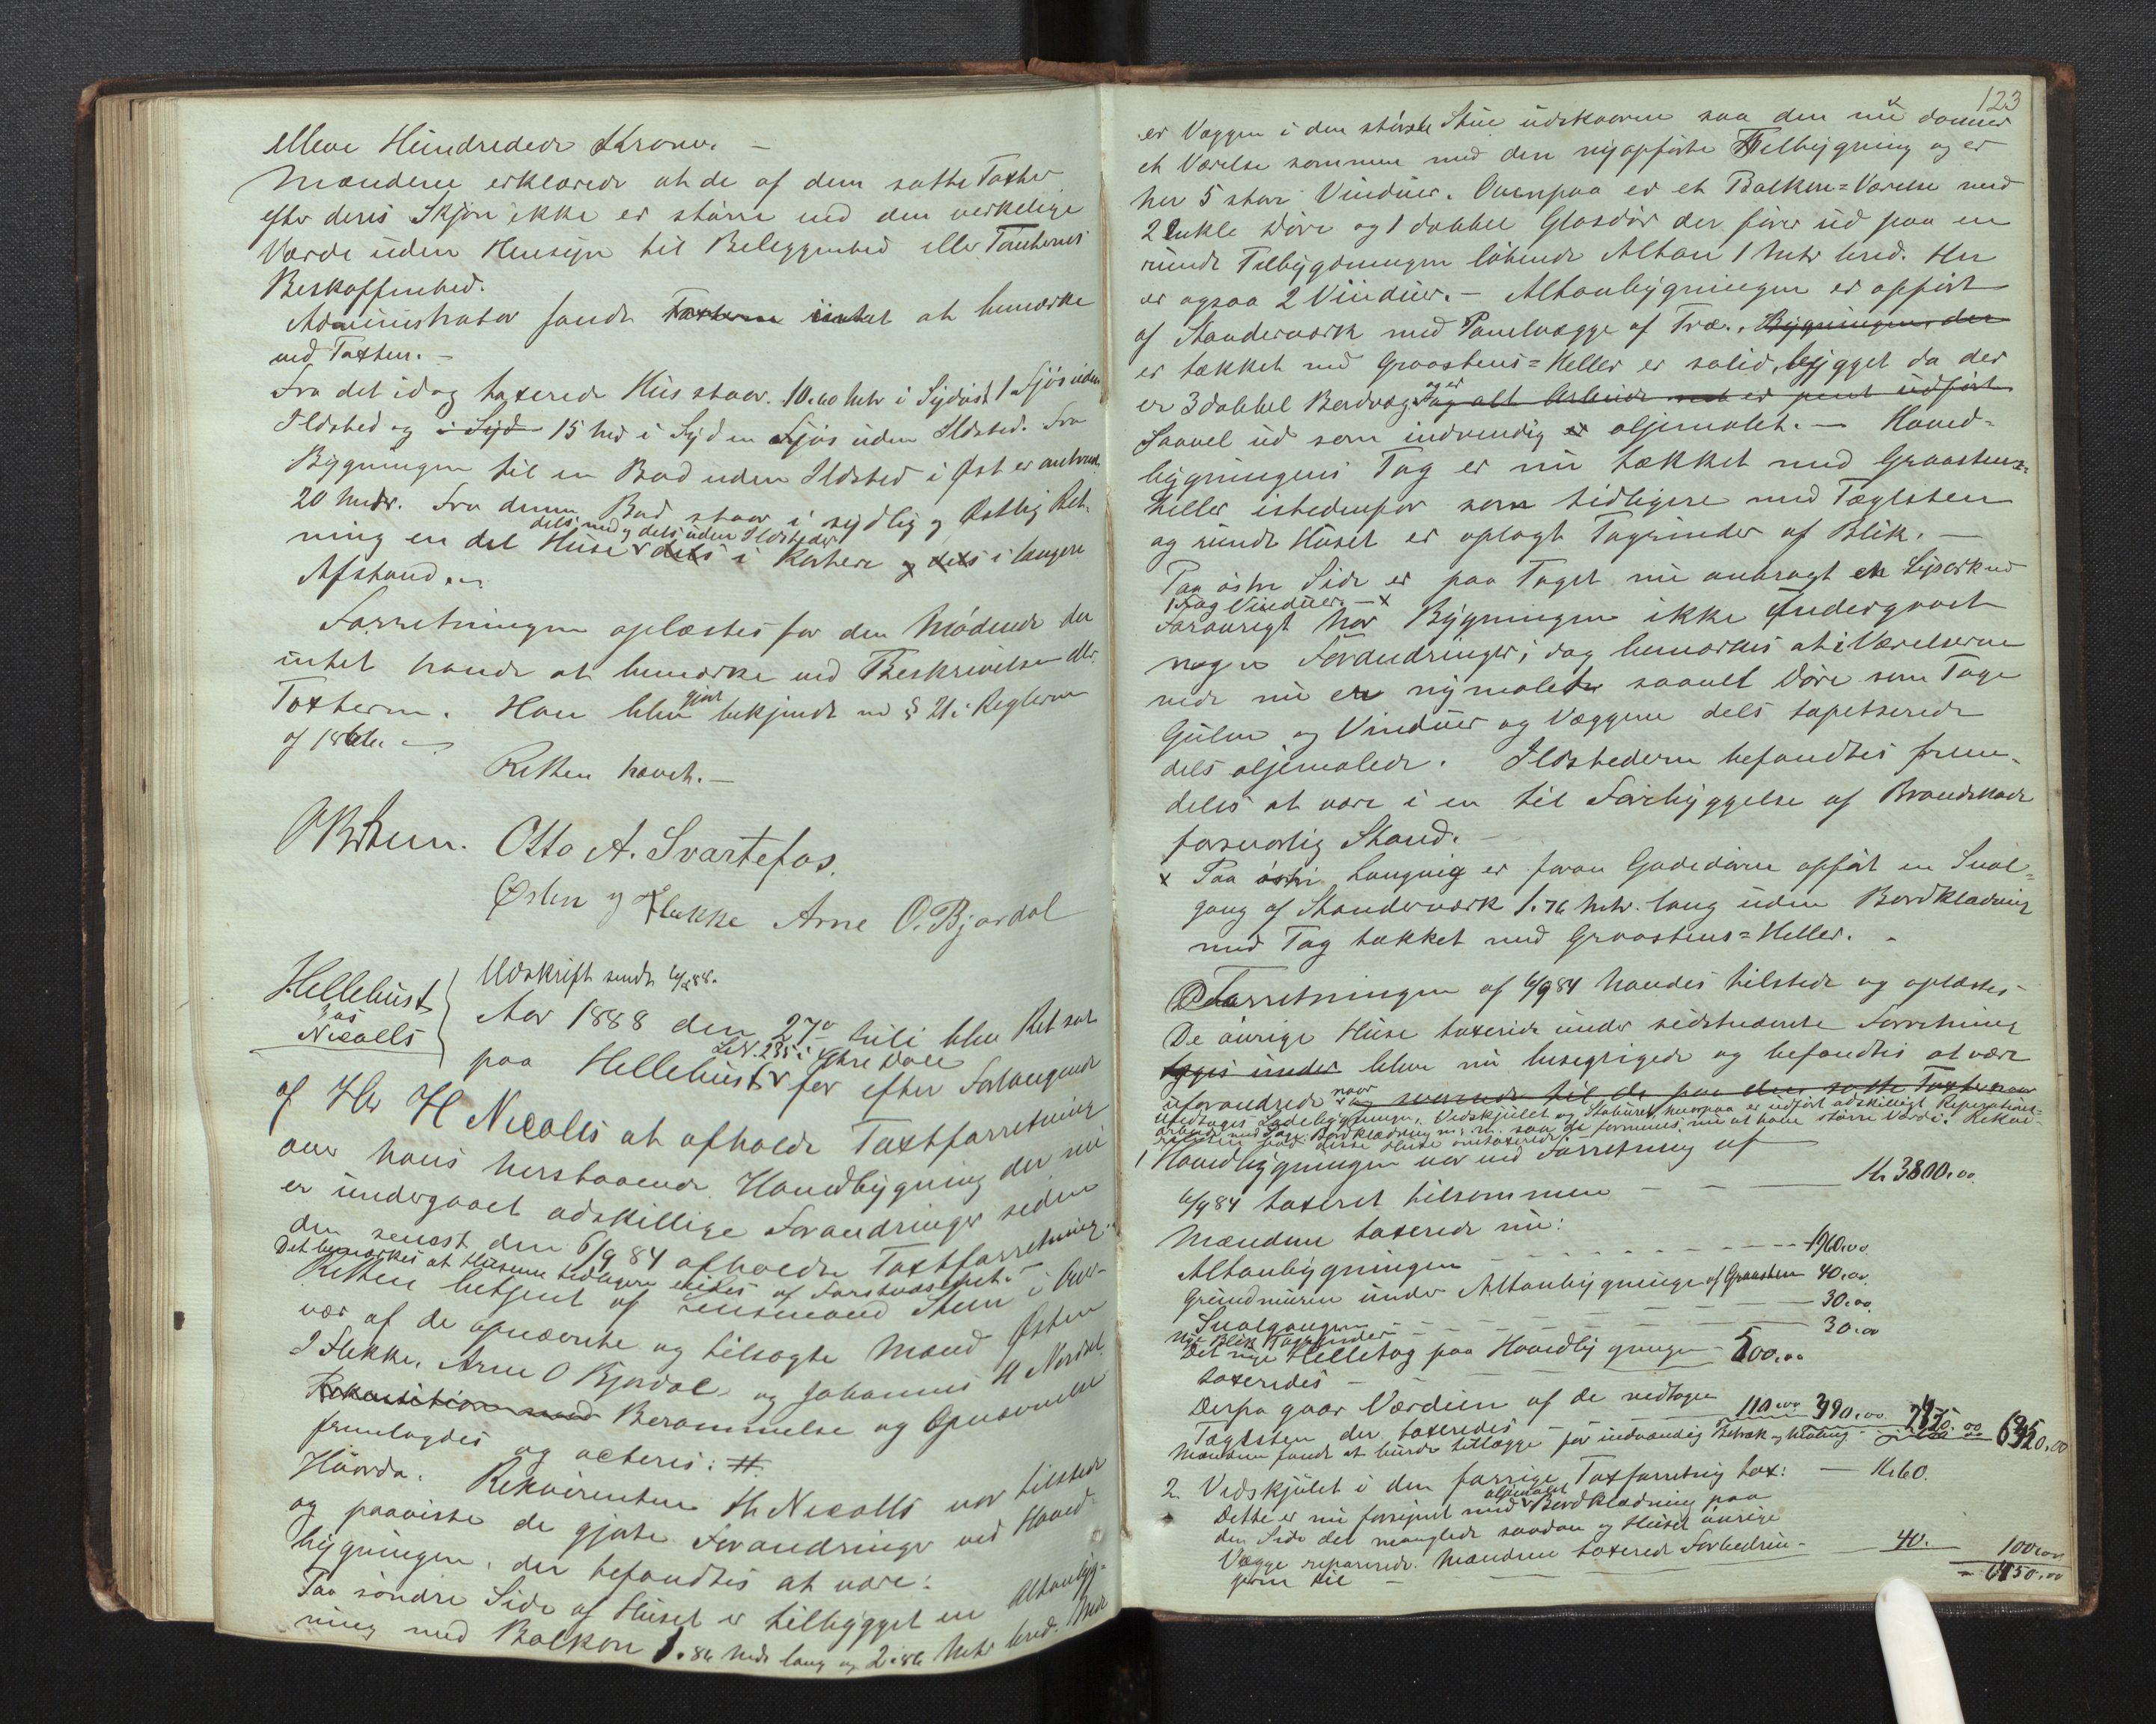 elleve Hundrede Kroner. –
Mændene erklærede at de af dem satte Taxter
efter deres Skjøn ikke er større end den verkelige
Værdi uden Hensyn til Beliggenhed eller Tomternes
Beskaffenhed.
Administrator fandt intet at bemærke
ved Taxten. –
Fra det idag taxerede Hus staar 10.60 Metr i Sydost 1 Fjøs uden
Ildsted og i Syd 15 Met i Syd en Fjøs uden Ildsted. Fra
Bygningen til en Bod uden Ildsted i Øst er omtrent
20 Metr. Fra denne Bod staar i sydlig og Østlig Ret-
dels med og dels uden Ildsteder
ning en del Huse dels i kortere og dels i længere
Afstand. –
Forretningen oplæstes for den Mødende der
intet havde at bemærke ved Beskrivelsen eller
Taxterne. Han blev gjort bekjendt med § 21 i Reglerne
af
Retten hævet. –
Otto A. Svartefos.
Østen J Flekke Arne O. Bjørdal
Udskrift sendt
Hellehust
Nicolls
Aar 1888 den 27de Juli blev Ret sat
paa Hellehust i Øvre Dale for efter Forlangende
af Hr H Nicolls at afholde Taxtforretning
over hans herstaaende Hovedbygning der nu
er undergaaet adskillige Forandringer siden
den senest den 6/9 84 afholdte Taxtforretning.
Det bemærkes at Husene tidligere eiedes af
Retten betjent af Lensmand i Over-
vær af de opnævnte og tilsagte Mænd Østen
J Flekke, Arne O Bjørdal og Johannes H Nordal
Rekvisition med Berammelse og Opnævnelse
fremlagdes og acteres: #
Hvorda. Rekvirenten H. Nicolls var tilstede
og paaviste de gjorte Forandringer ved Hoved-
bygningen, der befandtes at være:
Paa søndre Side af Huset er tilbygget en Altanbyg-
ning med Balkon 1.86 Metr lang og 2.86 Metr bred. Mede
123
er Væggen i den største Stue udskaaren saa den nu danner
et Værelse sammen med den nyopførte Tilbygning og er
her 5 store Vinduer. Ovenpaa er et Balkon=Værelse med
2 Enkle Døre og 1 dobbel Glasdør der fører ud paa en
rundt Tilbygningen løbende Altan 1 Metr bred. Her
er ogsaa 2 Vinduer. – Altanbygningen er opført
af Standerværk med Panelvægge af Træ. Bygningen, der
er tækket med Graastens=Heller er solid bygget da der
er 3 dobbel Bordvæg og er og alt Arbeide er pent udført
Saavel ud som indvendig er oljemalet. – Hoved-
bygningens Tag er nu tækket med Graastens-
heller istedenfor som tidligere med Taglsten
og rundt Huset er oplagt Tagrender af Blik. –
Paa østre Side er paa Taget nu anbragt et med
1 Fag Vinduer. – x
Forøvrigt har Bygningen ikke Undergaaet
nogen Forandringer; dog bemærkes at i Værelserne
nede nu er nymalede saavel Døre som Tage
Gulve og Vinduer og Væggene dels tapetserede
dels oljemalede. Ildstederne befandtes frem-
deles at være i en til Forebyggelse af Brandskade
forsvarlig Stand. –
x Paa østre Langvæg er foran Gadedøren opført en Sval-
gang af Standerværk 1.76 Metr. lang uden Bordklædning
med Tag tækket med Graastens=Heller. –
Forretningen af 6/9 84 havdes tilstede og oplæstes –
De øvrige Huse taxerede under sidstnævnte Forretning
blev nu besigtigede og befandtes at være
uforandrede naar og svarende til de paa dem satte Taxter naar
undtages Ildebygningen, Vedskjulet og Stabburet, hvorpaa er udført adskilligt Reparations-
arbeide med Bordklædning m.m. saa de formenes nu at have større Værdi. Rekvi-
disse Huse omtaxerede
1 Hovedbygningen var ved Forretning af
6/9 84 taxeret tilsammen – – Kr 3800.00
Mændene taxerede nu:
Altanbygningen – – – 1960.00
Grundmuren under Altanbygningen af Graasten 40.00
Svalgangen – – – 30.00
nye Blik Tagrender – – – 30.00
Det nye Helletag paa Hovedbygningen
taxeredes – 500.00
Derfra gaar Værdien af de nedtagne
Taglsten der taxeredes – 110.00 390.00
Mændene fandt at burde tillægge for indvendig Betræk og Maling
2. Vedskjulet i den forrige Taxforretning tax: – Kr 60.
Dette er nu forsynet med oljemalet Bordklædning paa
den Side det manglede saadan og Huset øvrige
Vægge reparerede. Mændene taxerede Forbedrin-
gerne til – – – 40. 100.00